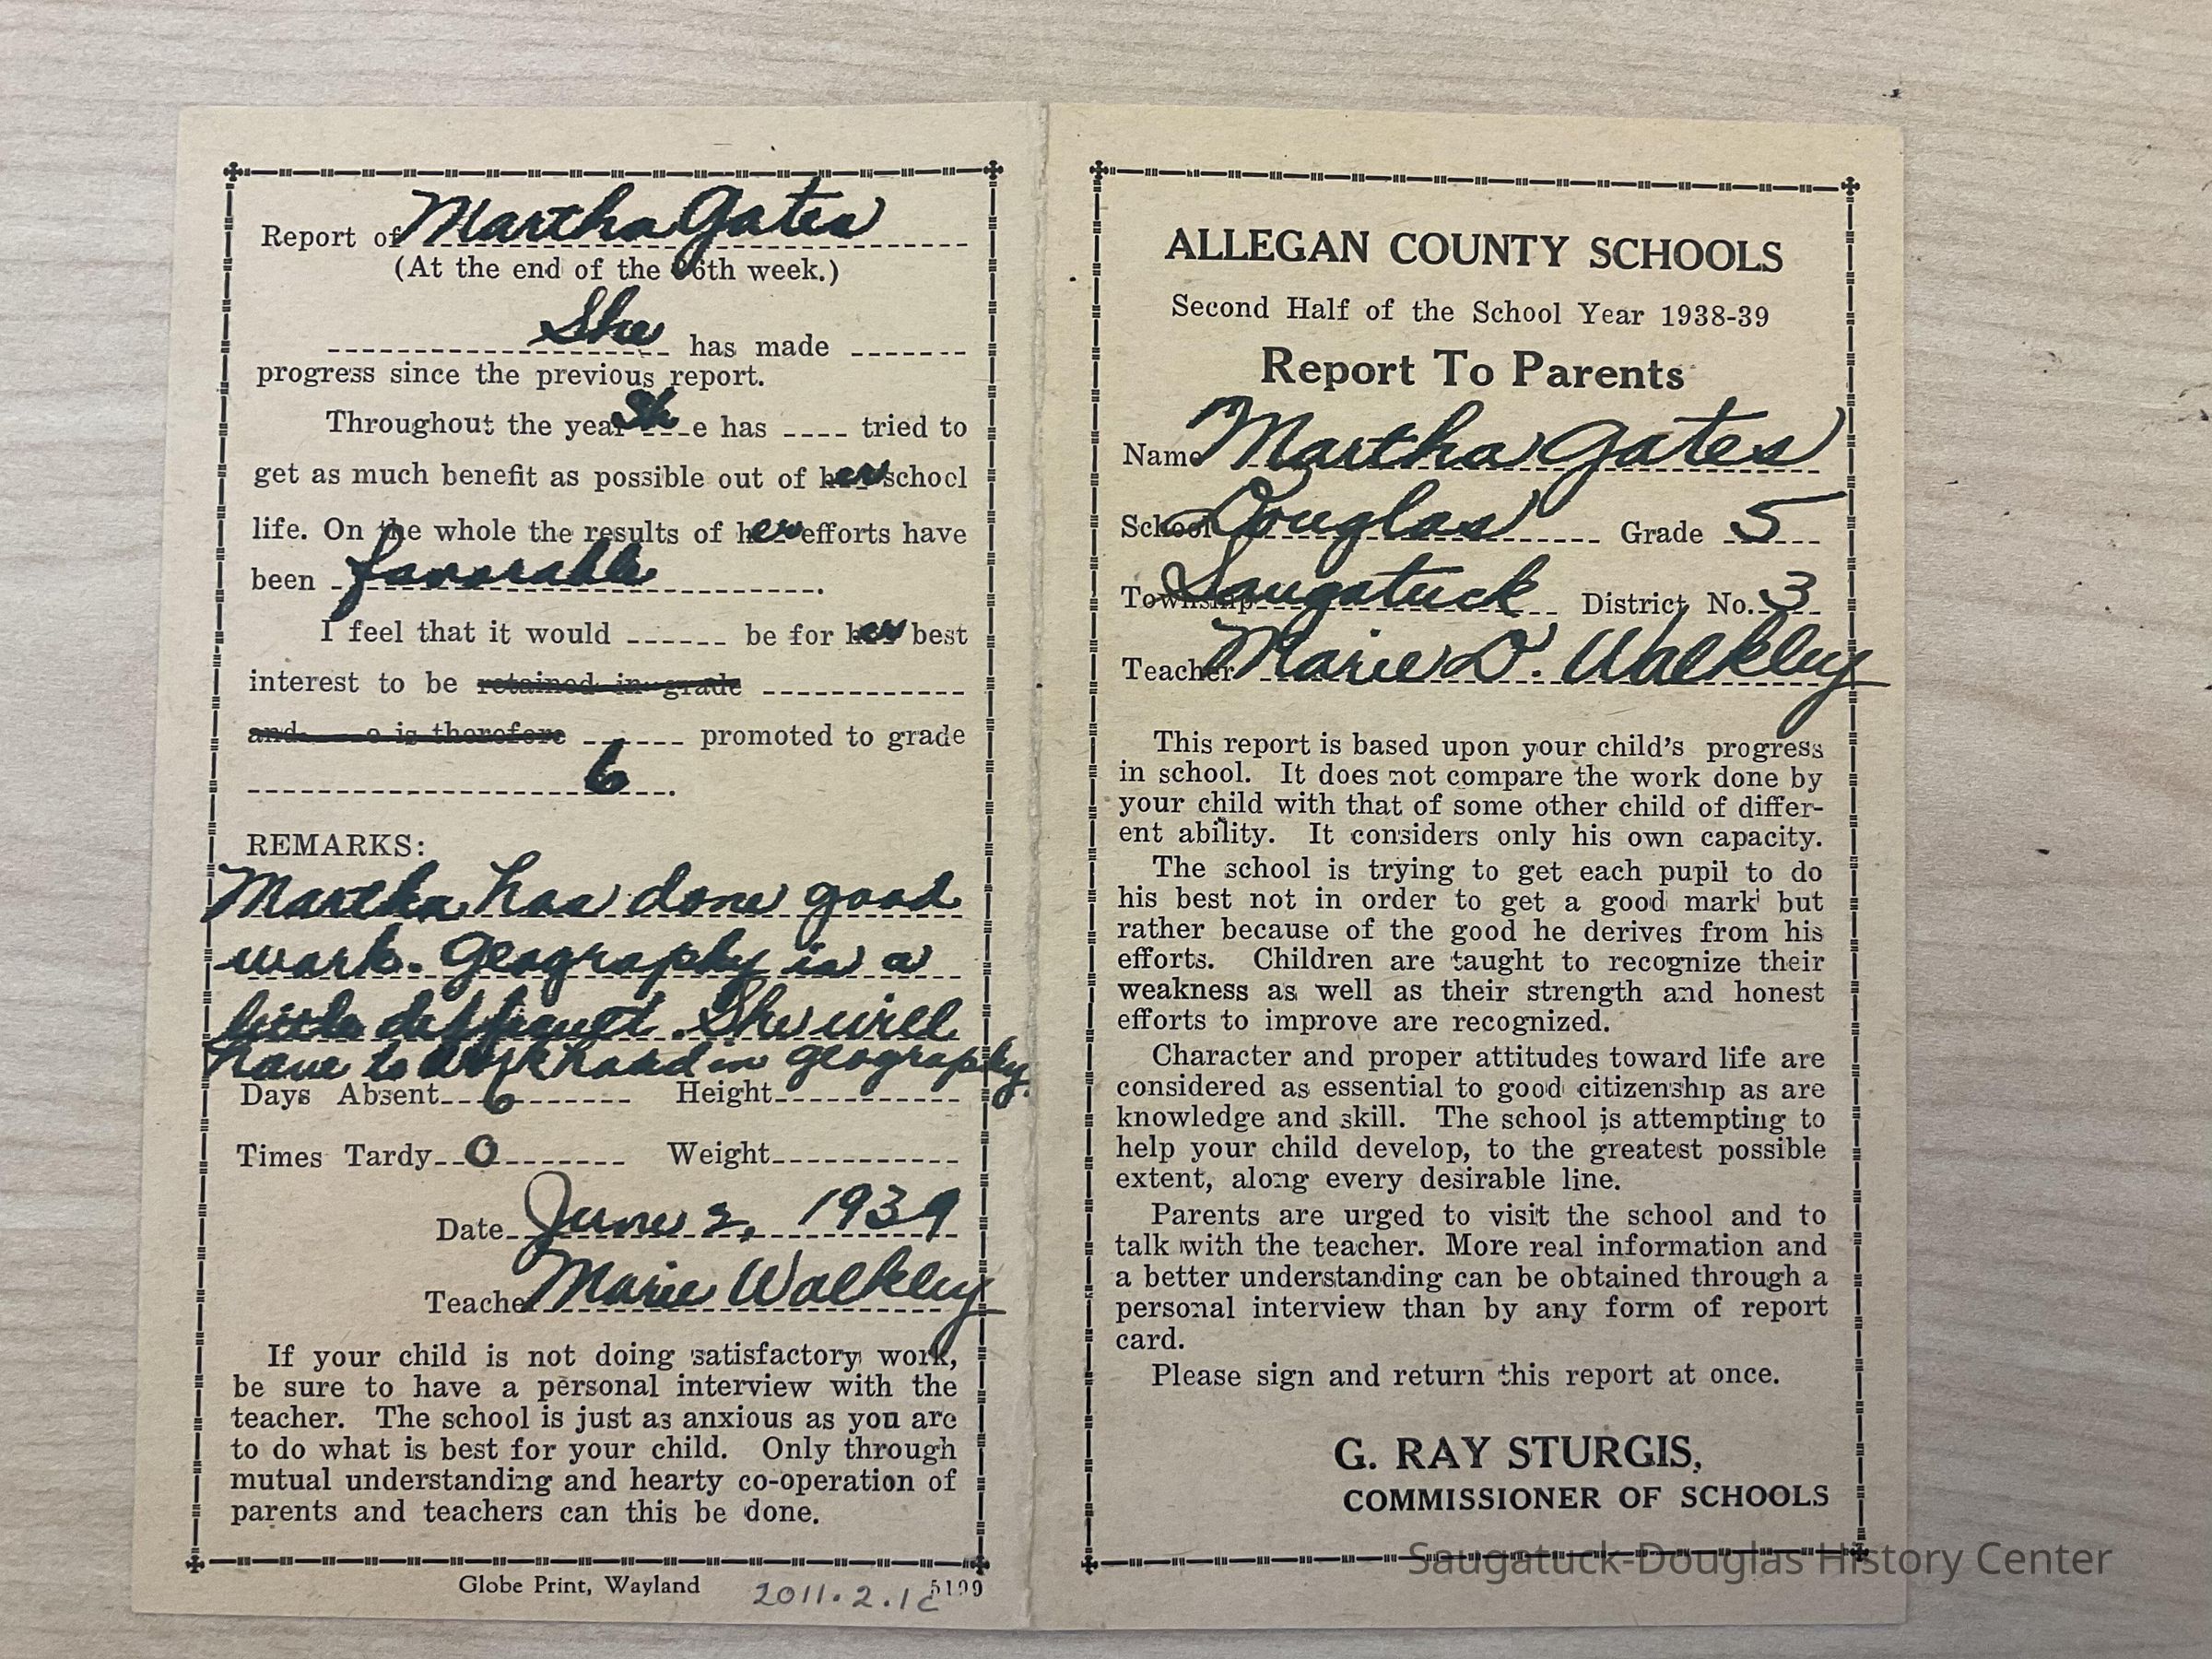 Report of Martha Gates
(At the end of the 36th week.)
She has made
progress since the previous report.
Throughout the year She has tried to
get as much benefit as possible out of her school
life. On the whole the results of her efforts have
been favorable.
I feel that it would be for her best
interest to be retained in grade
and e is therefore promoted to grade
6.
REMARKS:
Martha has done good
work. Geography is a
little difficult. She will
have to work hard in geography.
Days Absent 6 Height
Times Tardy 0 Weight
Date June 2, 1939
Teacher Marie Walkley
If your child is not doing satisfactory work,
be sure to have a personal interview with the
teacher. The school is just as anxious as you are
to do what is best for your child. Only through
mutual understanding and hearty co-operation of
parents and teachers can this be done.
Globe Print, Wayland 5199
2011.2.1c
ALLEGAN COUNTY SCHOOLS
Second Half of the School Year 1938-39
Report To Parents
Name Martha Gates
School Douglas Grade 5
Township Saugatuck District No. 3
Teacher Marie D. Walkley
This report is based upon your child's progress
in school. It does not compare the work done by
your child with that of some other child of differ-
ent ability. It considers only his own capacity.
The school is trying to get each pupil to do
his best not in order to get a good mark but
rather because of the good he derives from his
efforts. Children are taught to recognize their
weakness as well as their strength and honest
efforts to improve are recognized.
Character and proper attitudes toward life are
considered as essential to good citizenship as are
knowledge and skill. The school is attempting to
help your child develop, to the greatest possible
extent, along every desirable line.
Parents are urged to visit the school and to
talk with the teacher. More real information and
a better understanding can be obtained through a
personal interview than by any form of report
card.
Please sign and return this report at once.
G. RAY STURGIS,
COMMISSIONER OF SCHOOLS
Saugatuck-Douglas History Center